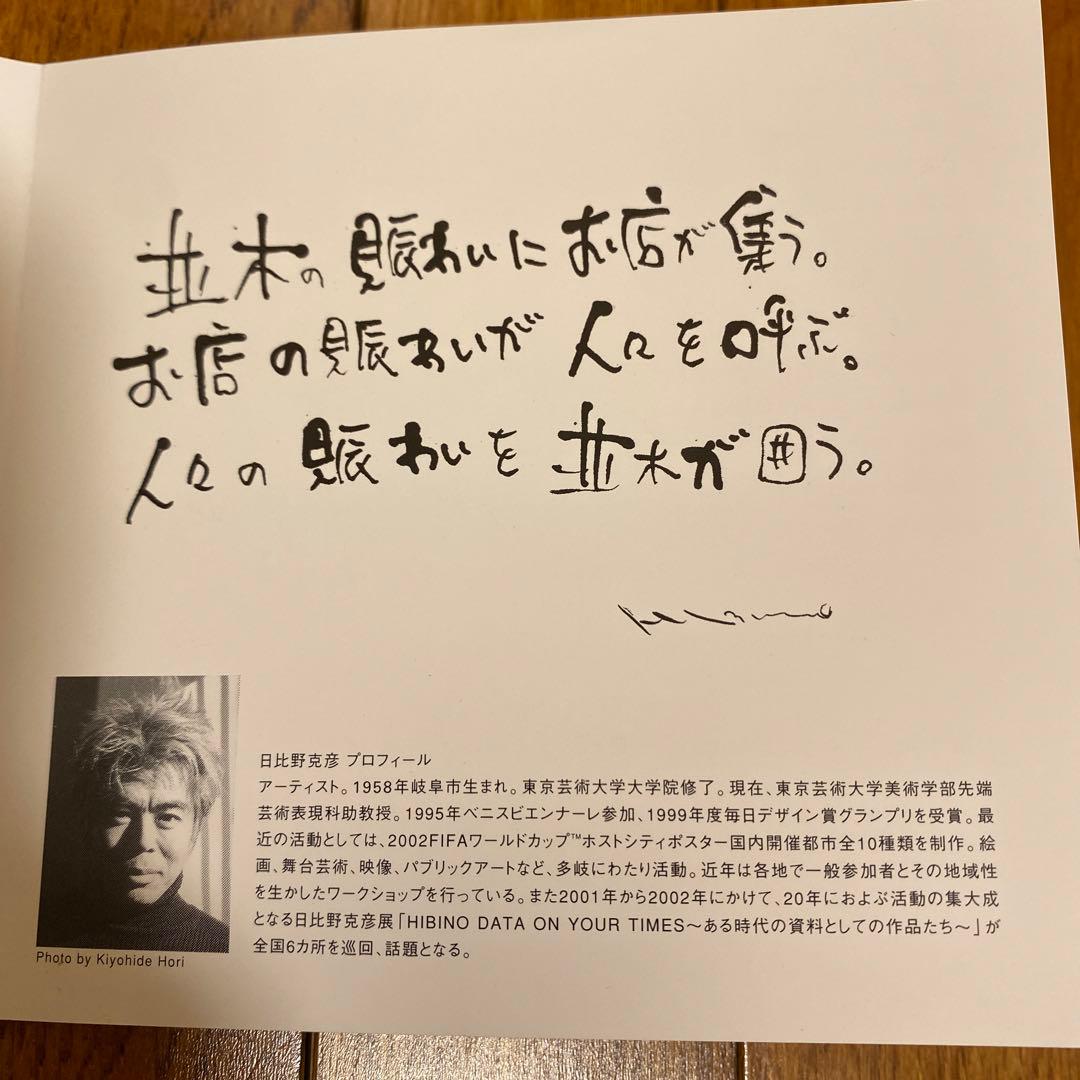 並木の賑わいにお店が集う。
お店の賑わいが人々を呼ぶ。
人々の賑わいを並木が囲う。
日比野克彦 プロフィール
アーティスト。1958年岐阜市生まれ。東京芸術大学大学院修了。現在、東京芸術大学美術学部先端
芸術表現科助教授。1995年ベニスビエンナーレ参加、1999年度毎日デザイン賞グランプリを受賞。最
近の活動としては、2002FIFAワールドカップ™ホストシティポスター国内開催都市全10種類を制作。絵
画、舞台芸術、映像、パブリックアートなど、多岐にわたり活動。近年は各地で一般参加者とその地域性
を生かしたワークショップを行っている。また2001年から2002年にかけて、20年におよぶ活動の集大成
となる日比野克彦展「HIBINO DATA ON YOUR TIMES〜ある時代の資料としての作品たち〜」が
全国6カ所を巡回、話題となる。
Photo by Kiyohide Hori